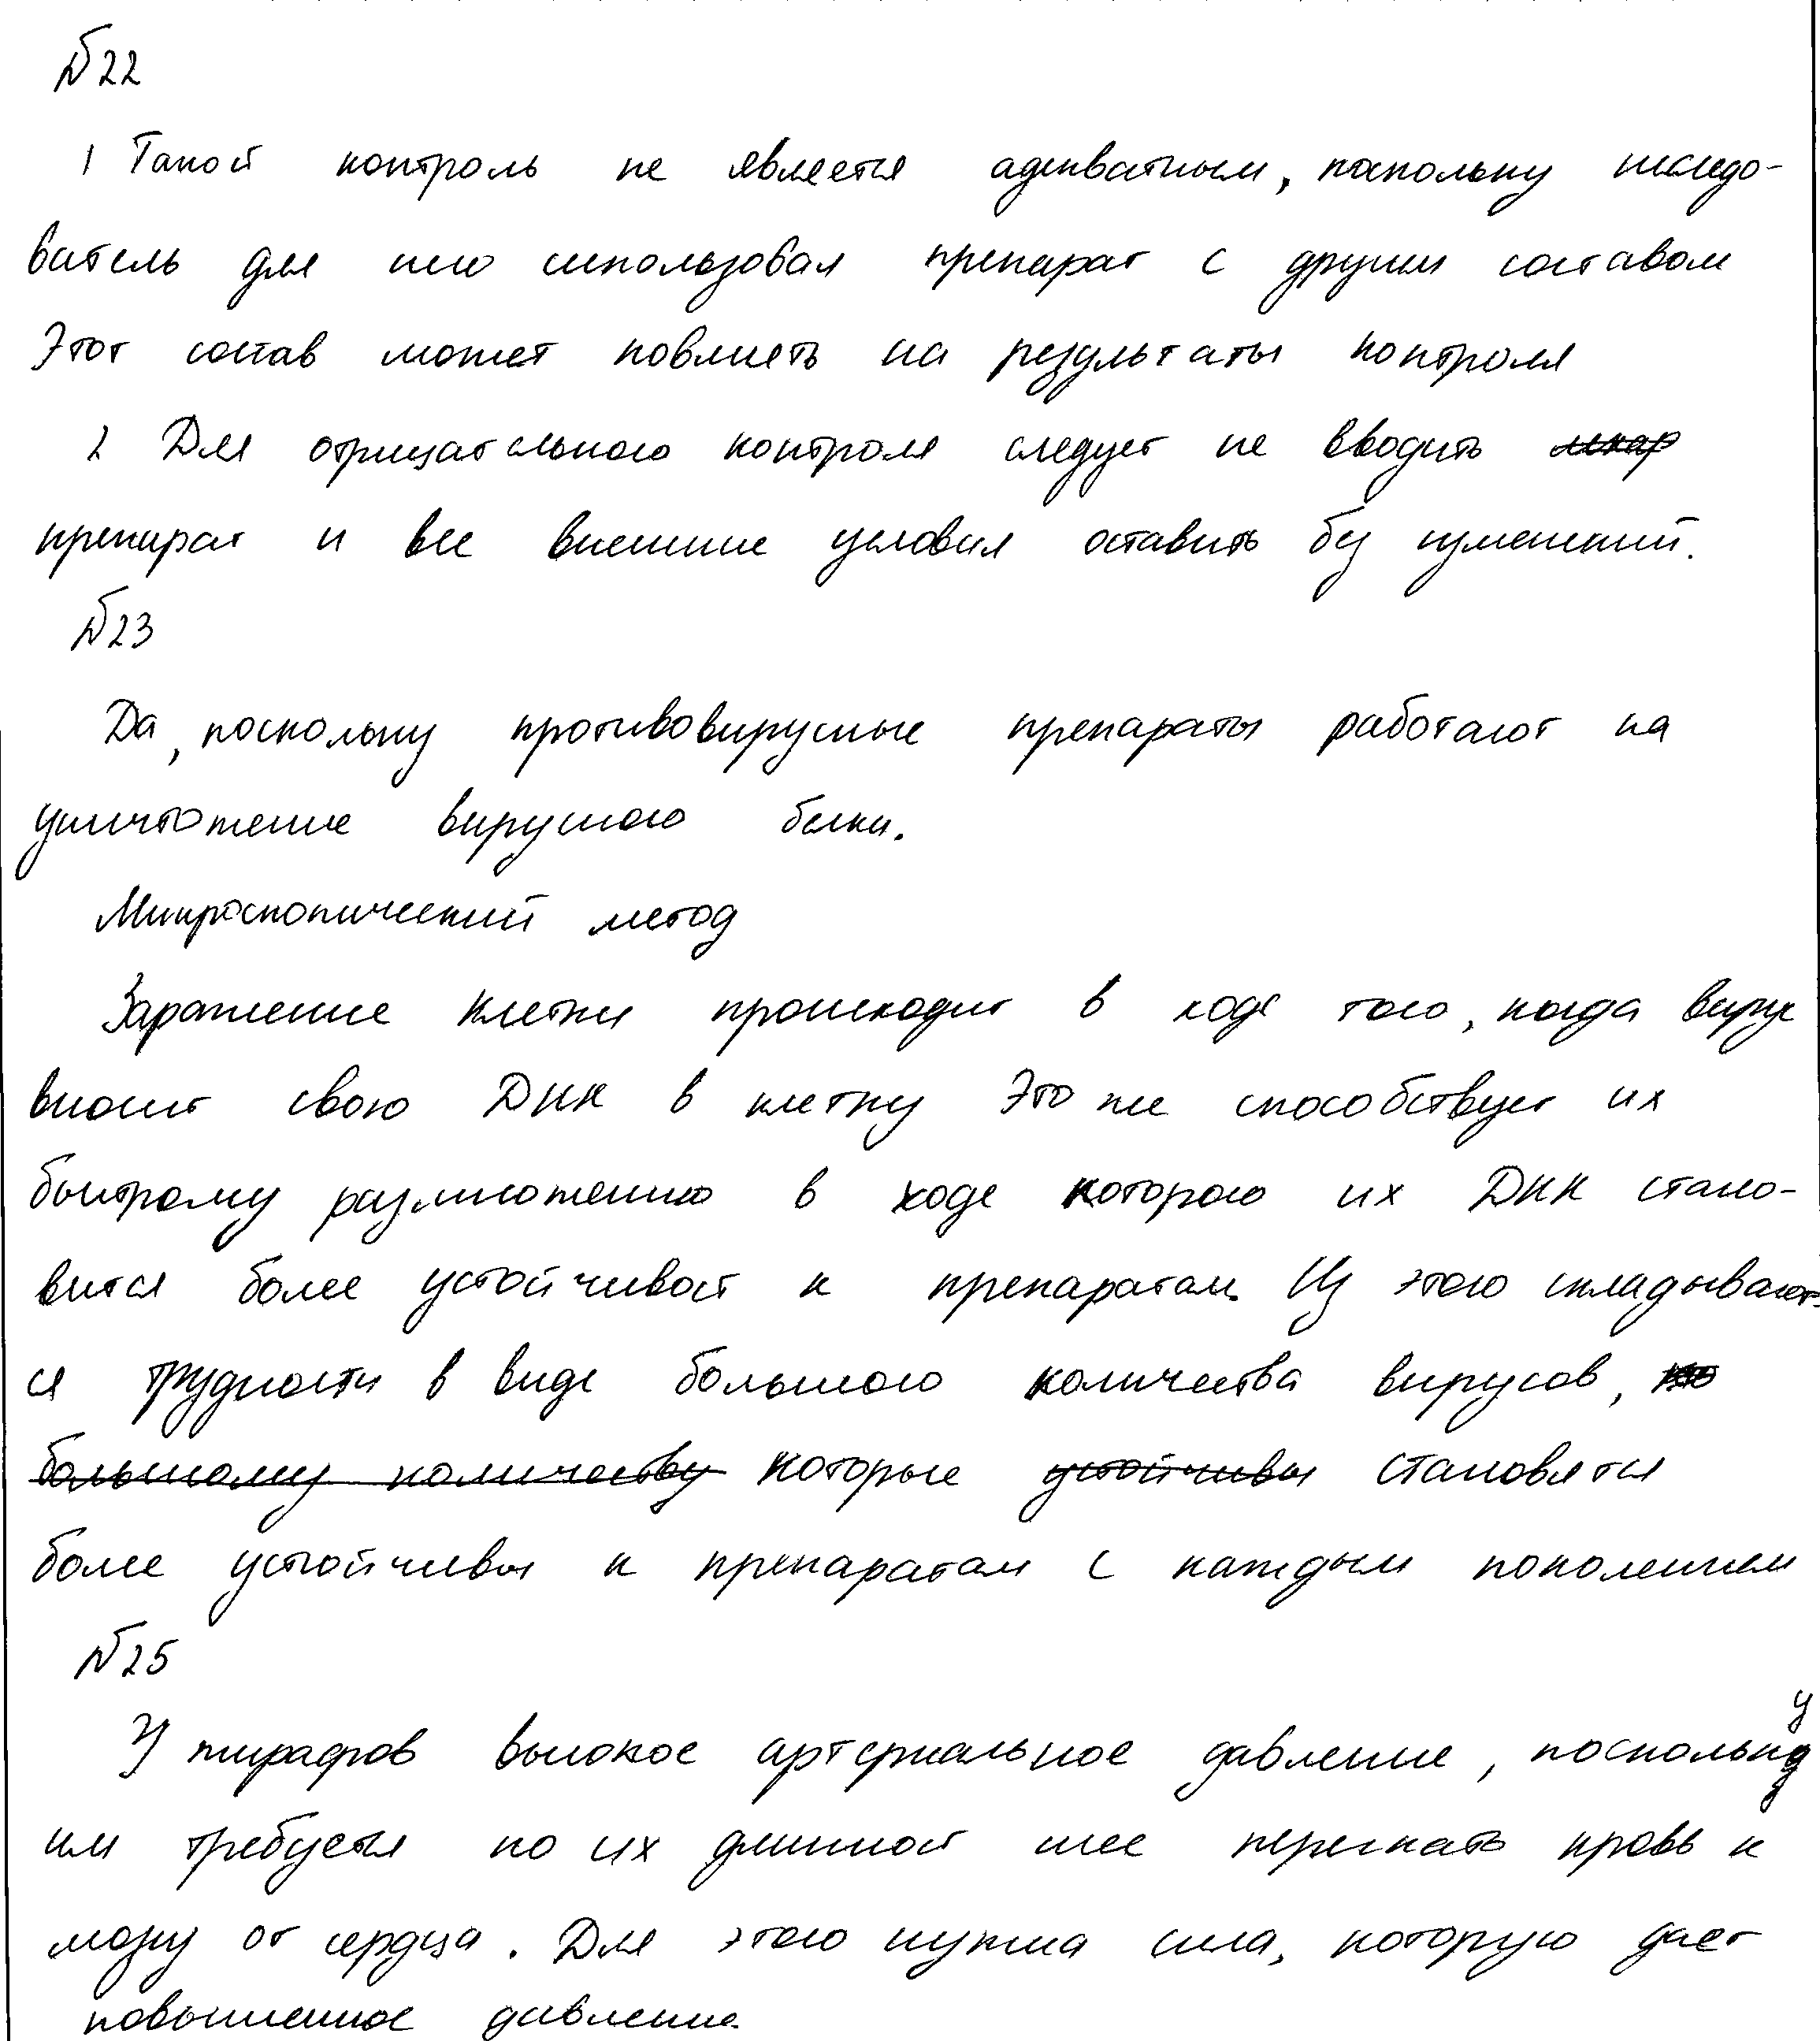 №22
1 Такой контроль не является адекватным, поскольку исследо-
ватель для него использовал препарат с другим составом
Этот состав может повлиять на результаты контроля
2 Для отрицательного контроля следует не вводить лекар
препарат и все внешние условия оставить без изменений.
№23
Да, поскольку противовирусные препараты работают на
уничтожение вирусного белка.
Микроскопический метод
Заражение клетки происходит в ходе того, когда вирус
вносит свою ДНК в клетку Это же способствует их
быстрому размножению в ходе которого их ДНК стано-
вится более устойчивой к препаратам. Из этого складывают-
ся трудности в виде большого количества вирусов,
большому количеству которые устойчивы становятся
более устойчивы к препаратам с каждым поколением
№25
У жирафов высокое артериальное давление, поскольку
им требуется по их длинной шее перегнать кровь к
мозгу от сердца. Для этого нужна сила, которую дает
повышенное давление.